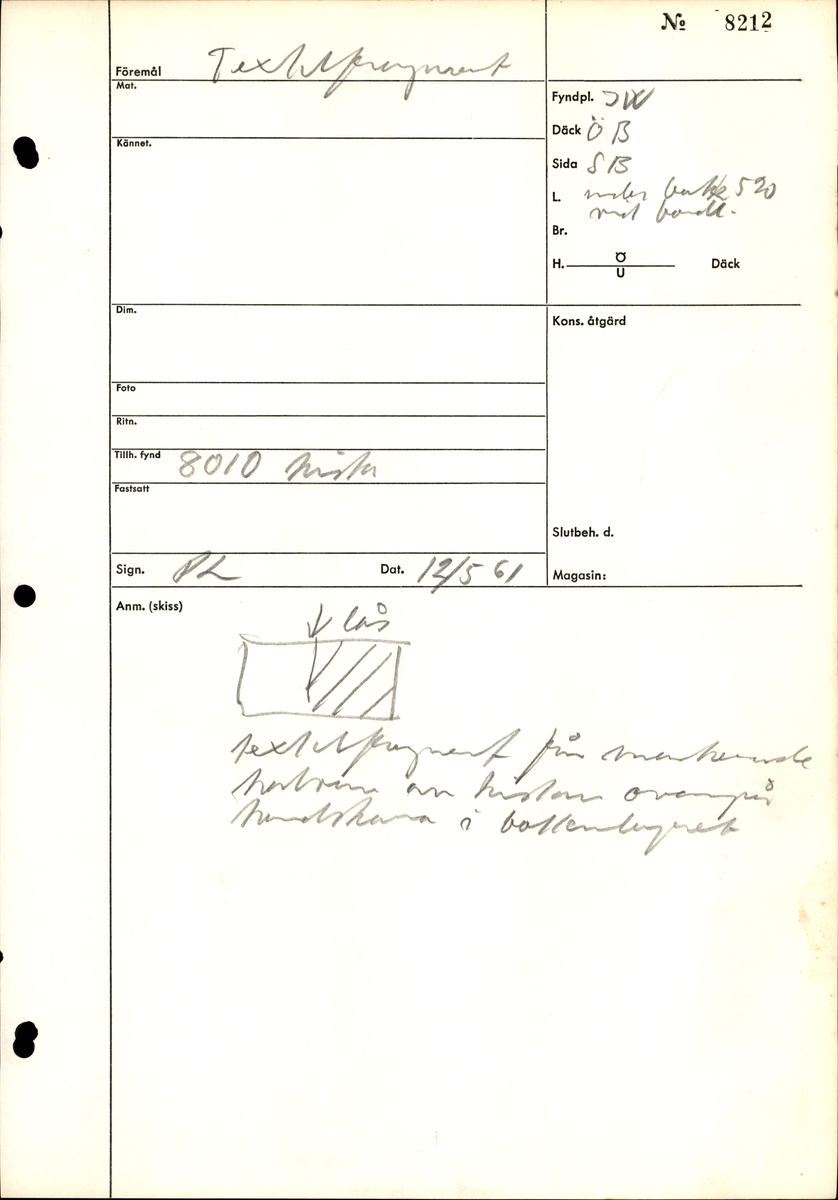 № 8212
Föremål Textilfragment
Mat.
Kännet.
Fyndpl. JW
Däck ÖB
Sida SB
L. under balk 520
vid bordl.
Br.
H. Ö
U
Däck
Dim.
Kons. åtgärd
Foto
Ritn.
Tillh. fynd 8010 kista
Fastsatt
Slutbeh. d.
Sign. PL
Dat. 12/5 61
Magasin:
Anm. (skiss)
lås
textilfragment från markerade
halvan av kistan ovanpå
handskarna i bottenlagret